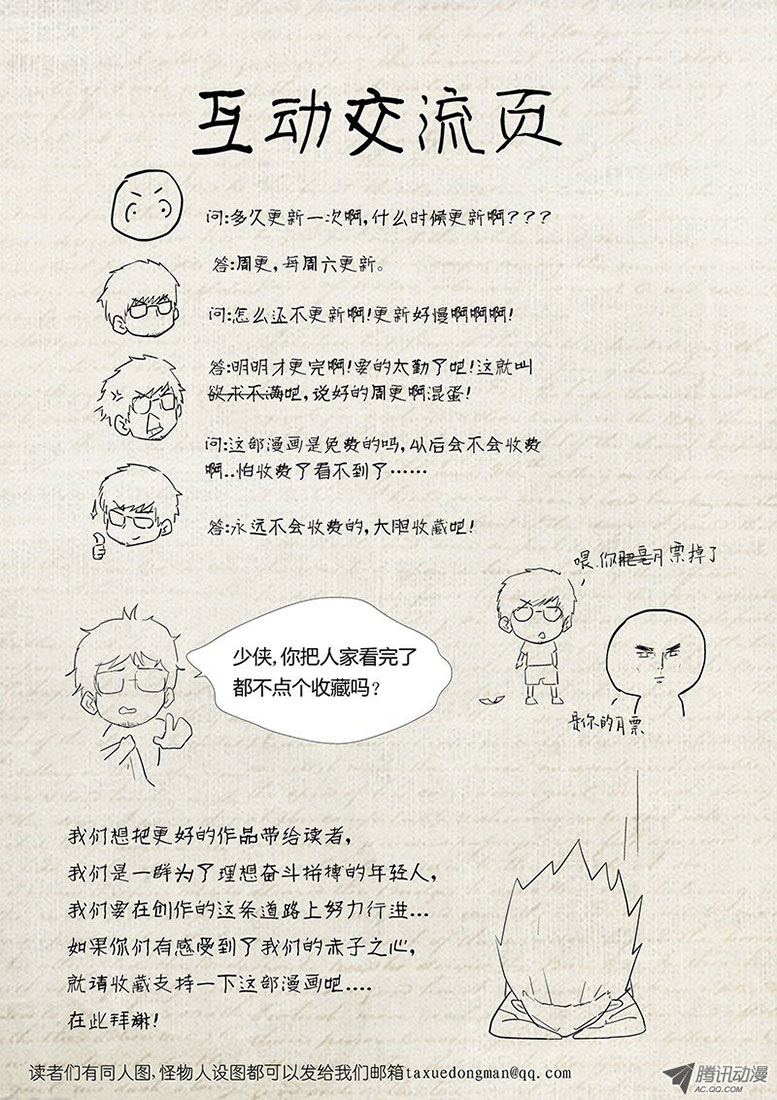 互动交流页
问:多久更新一次啊,什么时候更新啊???
答:周更,每周六更新。
问:怎么还不更新啊!更新好慢啊啊啊!
答:明明才更完啊!要的太勤了吧!这就叫
欲求不满吧,说好的周更啊混蛋!
问:这部漫画是免费的吗,以后会不会收费
啊..怕收费了看不到了……
答:永远不会收费的,大胆收藏吧!
喂.你肥皂月票掉了
少侠,你把人家看完了
都不点个收藏吗?
是你的月票
我们想把更好的作品带给读者,
我们是一群为了理想奋斗拼搏的年轻人,
我们要在创作的这条道路上努力行进...
如果你们有感受到了我们的赤子之心,
就请收藏支持一下这部漫画吧....
在此拜谢!
读者们有同人图,怪物人设图都可以发给我们邮箱taxuedongman@qq.com
腾讯动漫
AC.QQ.COM